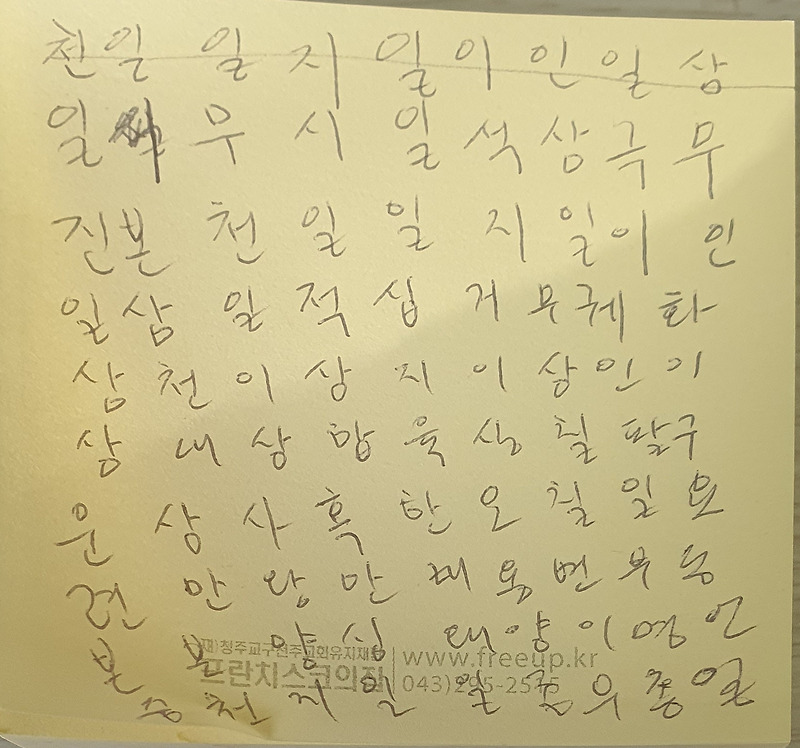 천일 일 지 일이 인일 삼
일 무 시 일 석 삼 극 무
진본 천 일 일 지 일이 인
일삼 일 적 십 거 무궤 화
삼 천 이 삼 지 이 삼 인 이
삼 대 삼 합 육 생 칠 팔구
운 삼 사 혹 한 오 칠 일 묘
련 만 왕 만 래 용 변 부 동
본 본 양 심 태 양 이 명 인
중 천 지 일 일 종 무 종 일
재)청주교구천주교회유지재단
프란치스코의집
www.freeup.kr
043)295-2545